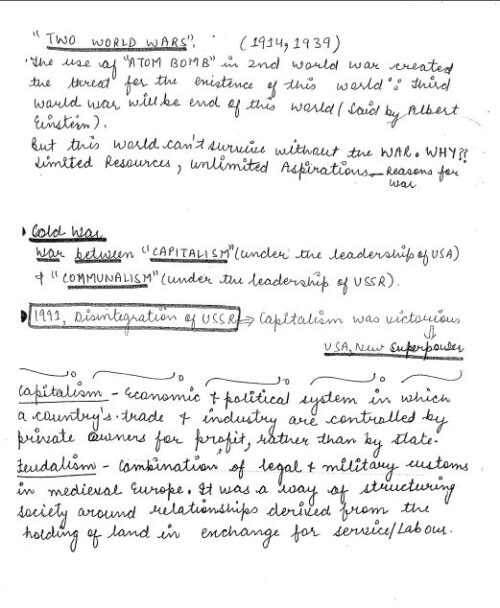 "TWO WORLD WARS": (1914, 1939)
The use of "ATOM BOMB" in 2nd world war created
the threat for the existence of this world ∵ Third
world war will be end of this world (said by Albert
Einstein).
But this world can't survive without the WAR. WHY??
Limited Resources, unlimited Aspirations - Reasons for
war
Cold War
War between "CAPITALISM" (under the leadership of USA)
& "COMMUNALISM" (under the leadership of USSR).
1991, Disintegration of USSR ⇒ Capitalism was victorious
⇓
USA, New Superpower
Capitalism - Economic & political system in which
a country's trade & industry are controlled by
private owners for profit, rather than by state.
Feudalism - Combination of legal & military customs
in medieval Europe. It was a way of structuring
society around relationships derived from the
holding of land in exchange for service/Labour.